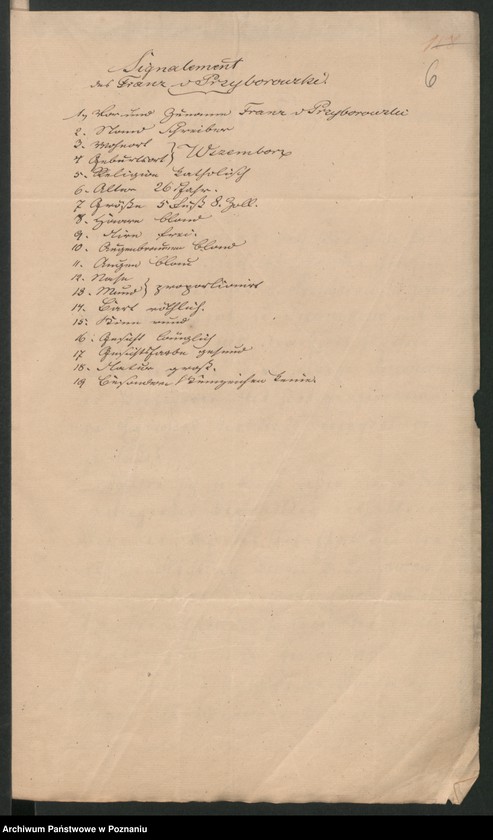 6
Signalement
des Franz v Przyborowski.
1, Vor und Zuname Franz v Przyborowski
2. Stand Schreiber
3. Wohnort
4 Geburtsort } Wszemborz
5. Religion katholisch
6. Alter 26 Jahr.
7 Größe 5 Fuß 8. Zoll.
8. Haare blond
9. Stirn frei.
10. Augenbraunen blond
11. Augen blau
12. Nase
13. Mund } proportionirt
14. Bart röthlich.
15. Kinn rund
16. Gesicht länglich
17 Gesichtsfarbe gesund
18. Statur groß.
19 Besondere Kennzeichen keine.
Archiwum Państwowe w Poznaniu